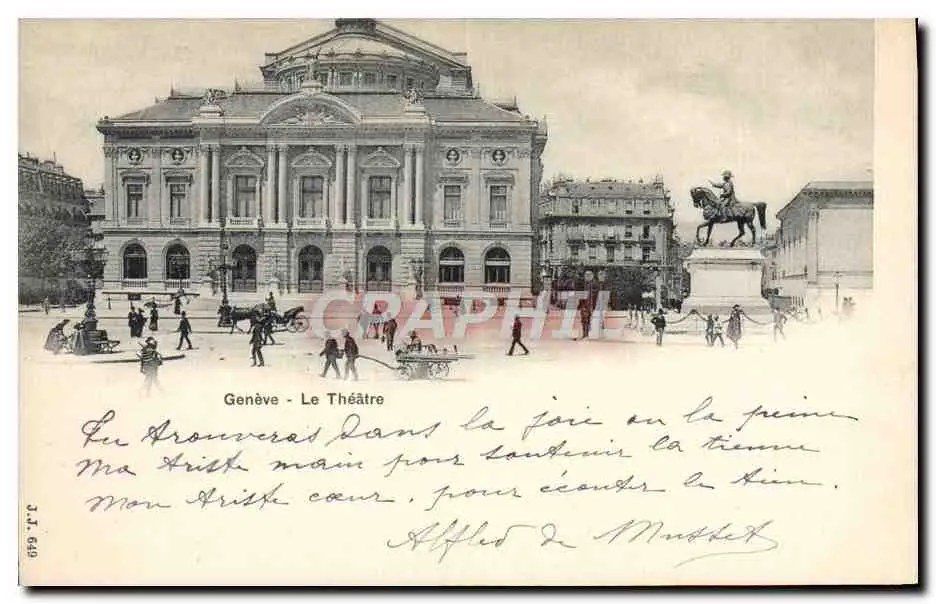 Genève - Le Théâtre
Tu trouveras Dans la joie ou la peine
Ma triste main pour soutenir la tienne
Mon triste cœur, pour écouter le tien.
Alfred de Musset
J.J. 649
CRAPHIL